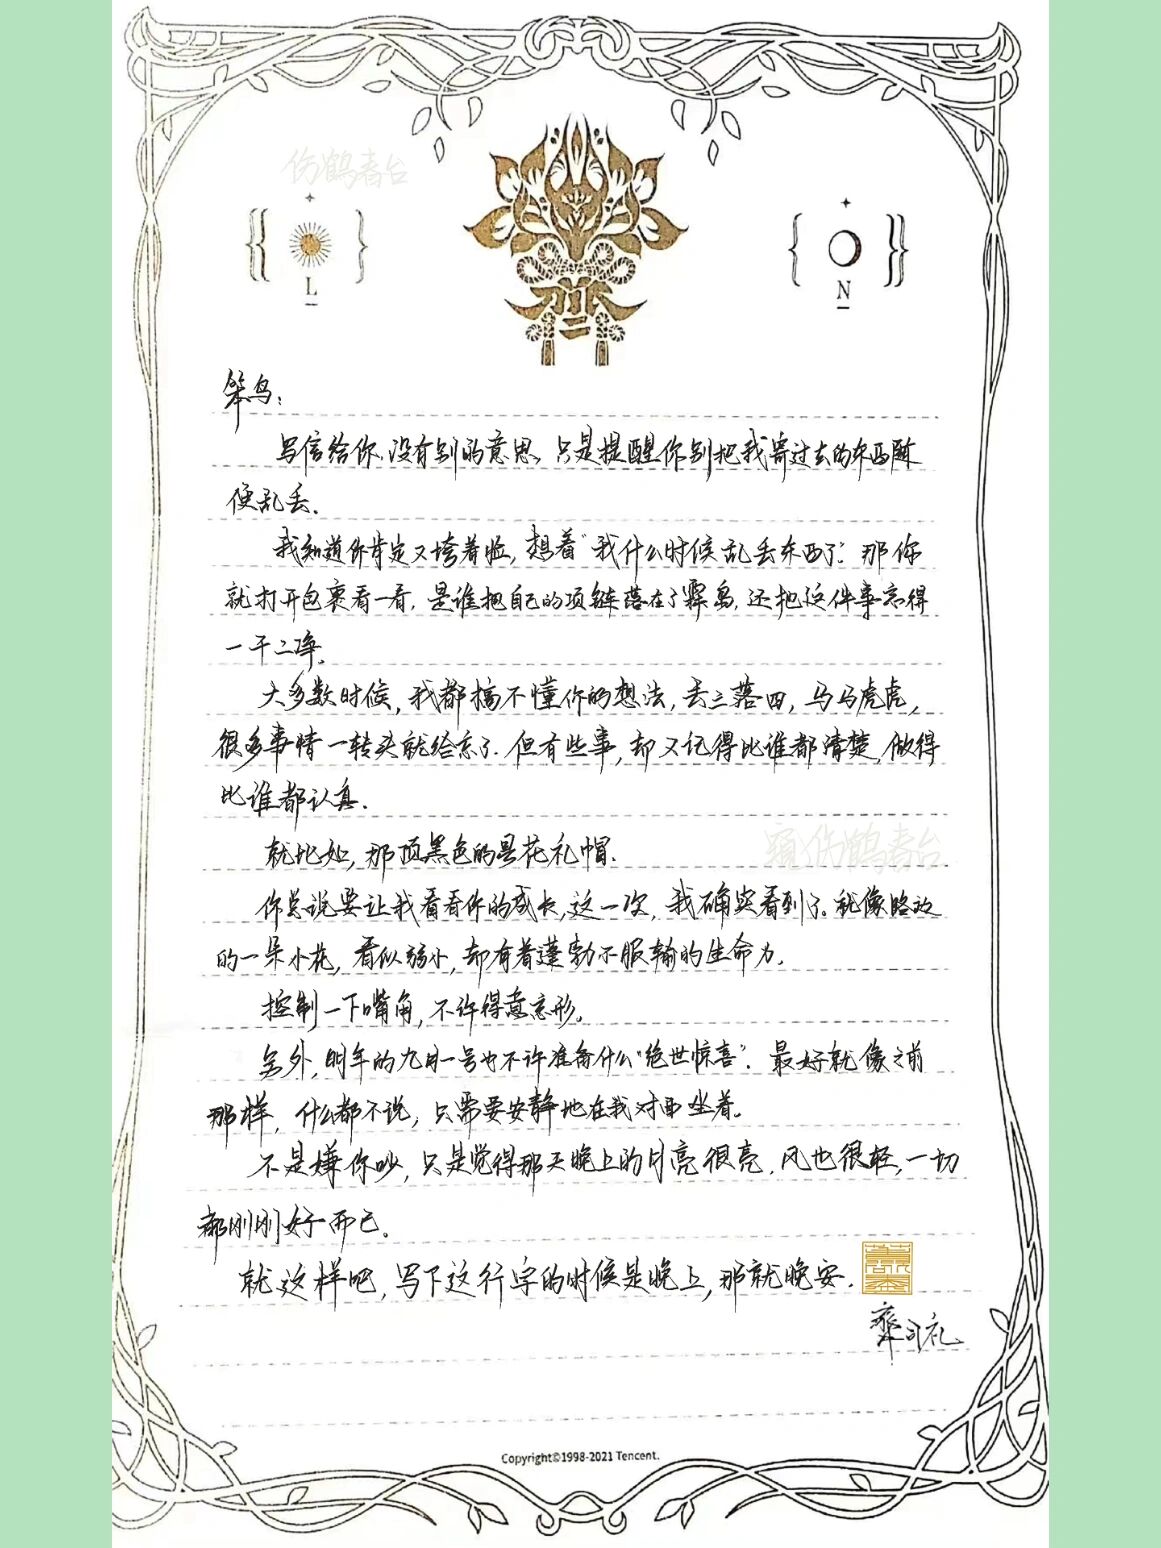 伤鹤春台
L
N
笨鸟：
写信给你，没有别的意思，只是提醒你别把我寄过去的东西随
便乱丢。
我知道你肯定又垮着脸，想着“我什么时候乱丢东西了”。那你
就打开包裹看一看，是谁把自己的项链落在了霁岛，还把这件事忘得
一干二净。
大多数时候，我都搞不懂你的想法，丢三落四，马马虎虎，
很多事情一转头就给忘了。但有些事，却又记得比谁都清楚，做得
比谁都认真。
就比如，那顶黑色的昙花礼帽。
你总说要让我看看你的成长，这一次，我确实看到了。就像路边
的一朵小花，看似弱小，却有着蓬勃不服输的生命力。
控制一下嘴角，不许得意忘形。
另外，明年的九月一号也不许准备什么“绝世惊喜”。最好就像之前
那样，什么都不说，只需要安静地在我对面坐着。
不是嫌你吵，只是觉得那天晚上的月亮很亮，风也很轻，一切
都刚刚好而已。
就这样吧，写下这行字的时候是晚上，那就晚安。
齐司礼
Copyright©1998-2021 Tencent.